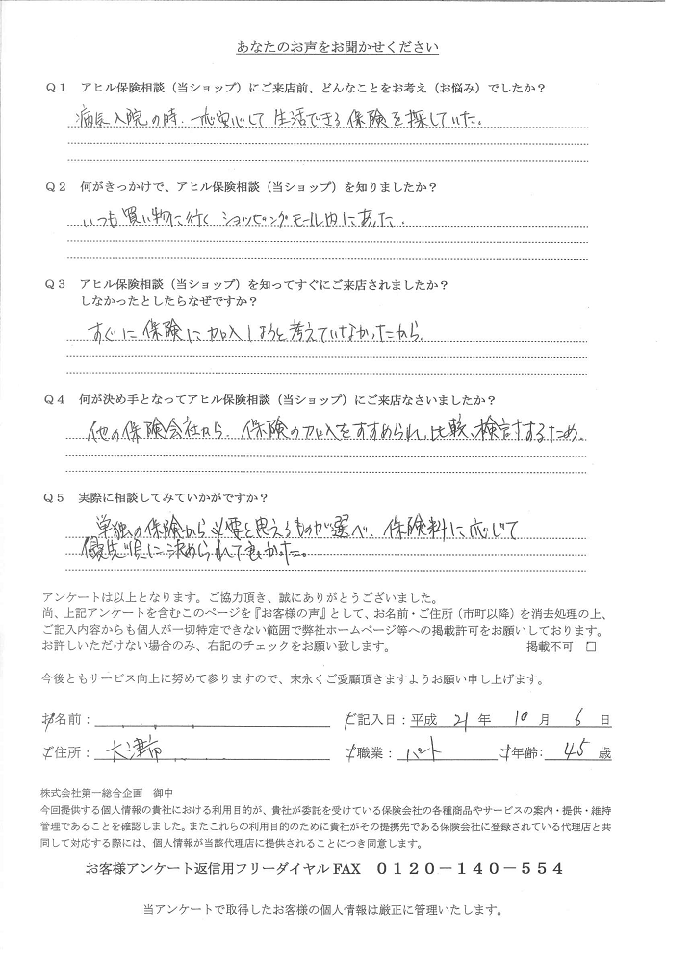 あなたのお声をお聞かせください
Q1 アヒル保険相談（当ショップ）にご来店前、どんなことをお考え（お悩み）でしたか？
病気入院の時、一応安心して生活できる保険を探していた。
Q2 何がきっかけで、アヒル保険相談（当ショップ）を知りましたか？
いつも買い物に行くショッピングモール内にあった。
Q3 アヒル保険相談（当ショップ）を知ってすぐにご来店されましたか？
しなかったとしたらなぜですか？
すぐに保険に加入しようと考えていなかったから
Q4 何が決め手となってアヒル保険相談（当ショップ）にご来店なさいましたか？
他の保険会社から、保険の加入をすすめられ、比較、検討するため。
Q5 実際に相談してみていかがですか？
単独の保険から必要と思えるものが選べ、保険料に応じて
優先順に決められて良かった。
アンケートは以上となります。ご協力頂き、誠にありがとうございました。
尚、上記アンケートを含むこのページを『お客様の声』として、お名前・ご住所（市町以降）を消去処理の上、
ご記入内容からも個人が一切特定できない範囲で弊社ホームページ等への掲載許可をお願いしております。
お許しいただけない場合のみ、右記のチェックをお願い致します。 掲載不可 □
今後ともサービス向上に努めて参りますので、末永くご愛顧頂きますようお願い申し上げます。
お名前： ご記入日：平成 21 年 10 月 6 日
ご住所： 大津市 ご職業： パート ご年齢： 45 歳
株式会社第一総合企画 御中
今回提供する個人情報の貴社における利用目的が、貴社が委託を受けている保険会社の各種商品やサービスの案内・提供・維持
管理であることを確認しました。またこれらの利用目的のために貴社がその提携先である保険会社に登録されている代理店と共
同して対応する際には、個人情報が当該代理店に提供されることにつき同意します。
お客様アンケート返信用フリーダイヤル FAX ０１２０－１４０－５５４
当アンケートで取得したお客様の個人情報は厳正に管理いたします。